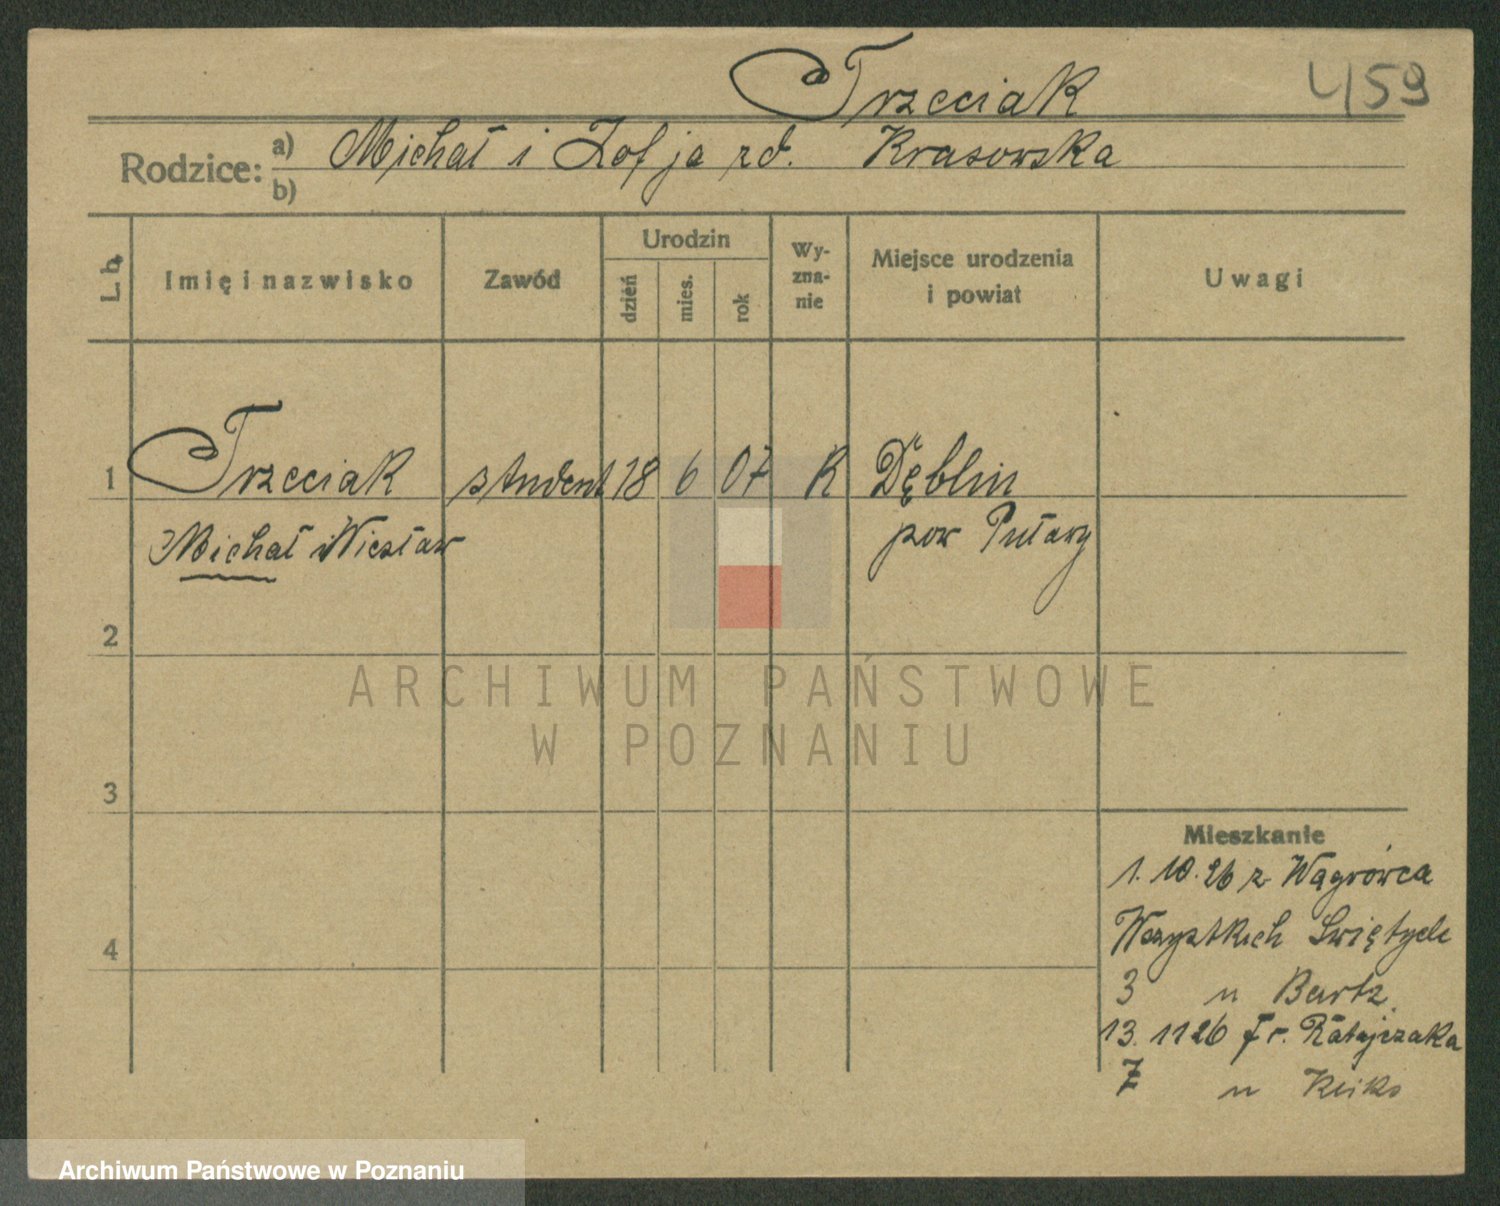 Trzeciak
459
Rodzice: a) Michał i Zofja rd. Krasowska
b)
L. b.
Imię i nazwisko
Zawód
Urodzin
dzień
mies.
rok
Wy-
zna-
nie
Miejsce urodzenia
i powiat
Uwagi
1 Trzeciak student 18 6 07 R Dęblin
Michał Wiesław pow Puławy
2
3
4
ARCHIWUM PAŃSTWOWE
W POZNANIU
Mieszkanie
1.10.26 z Wągrówca
Wszystkich Świętych
3 u Bartz
13.1126 Fr. Ratajczaka
7 u
Archiwum Państwowe w Poznaniu